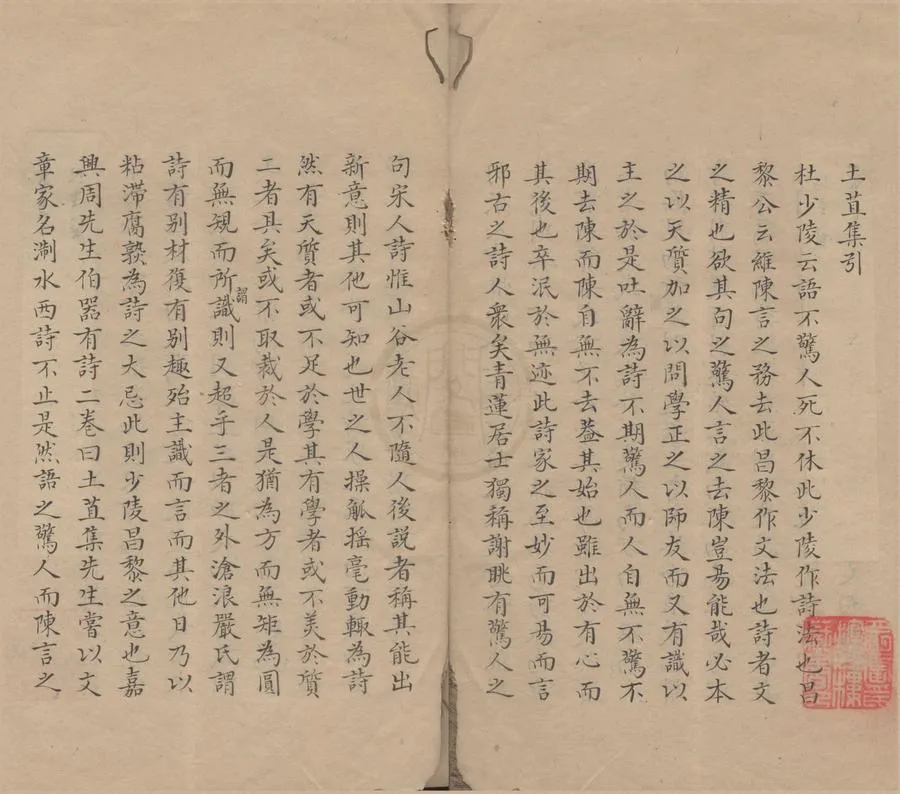 土苴集引
杜少陵云語不驚人死不休此少陵作詩法也昌
黎公云維陳言之務去此昌黎作文法也詩者文
之精也欲其句之驚人言之去陳豈易能哉必本
之以天質加之以問學正之以師友而又有識以
主之於是吐辭為詩不期驚人而人自無不驚不
期去陳而陳自無不去葢其始也雖出於有心而
其後也卒泯於無迹此詩家之至妙而可易而言
邪古之詩人衆矣青蓮居士獨稱謝眺有驚人之
句宋人詩惟山谷老人不隨人後説者稱其能出
新意則其他可知也世之人操觚揺毫動輙為詩
然有天質者或不足於學其有學者或不美於質
二者具矣或不取裁於人是猶為方而無矩為圓
而無規而所謂識則又超乎三者之外滄浪嚴氏謂
詩有别材復有别趣殆主識而言而其他日乃以
粘滯腐熟為詩之大忌此則少陵昌黎之意也嘉
興周先生伯噐有詩二卷曰土苴集先生嘗以文
章家名淛水西詩不止是然語之驚人而陳言之